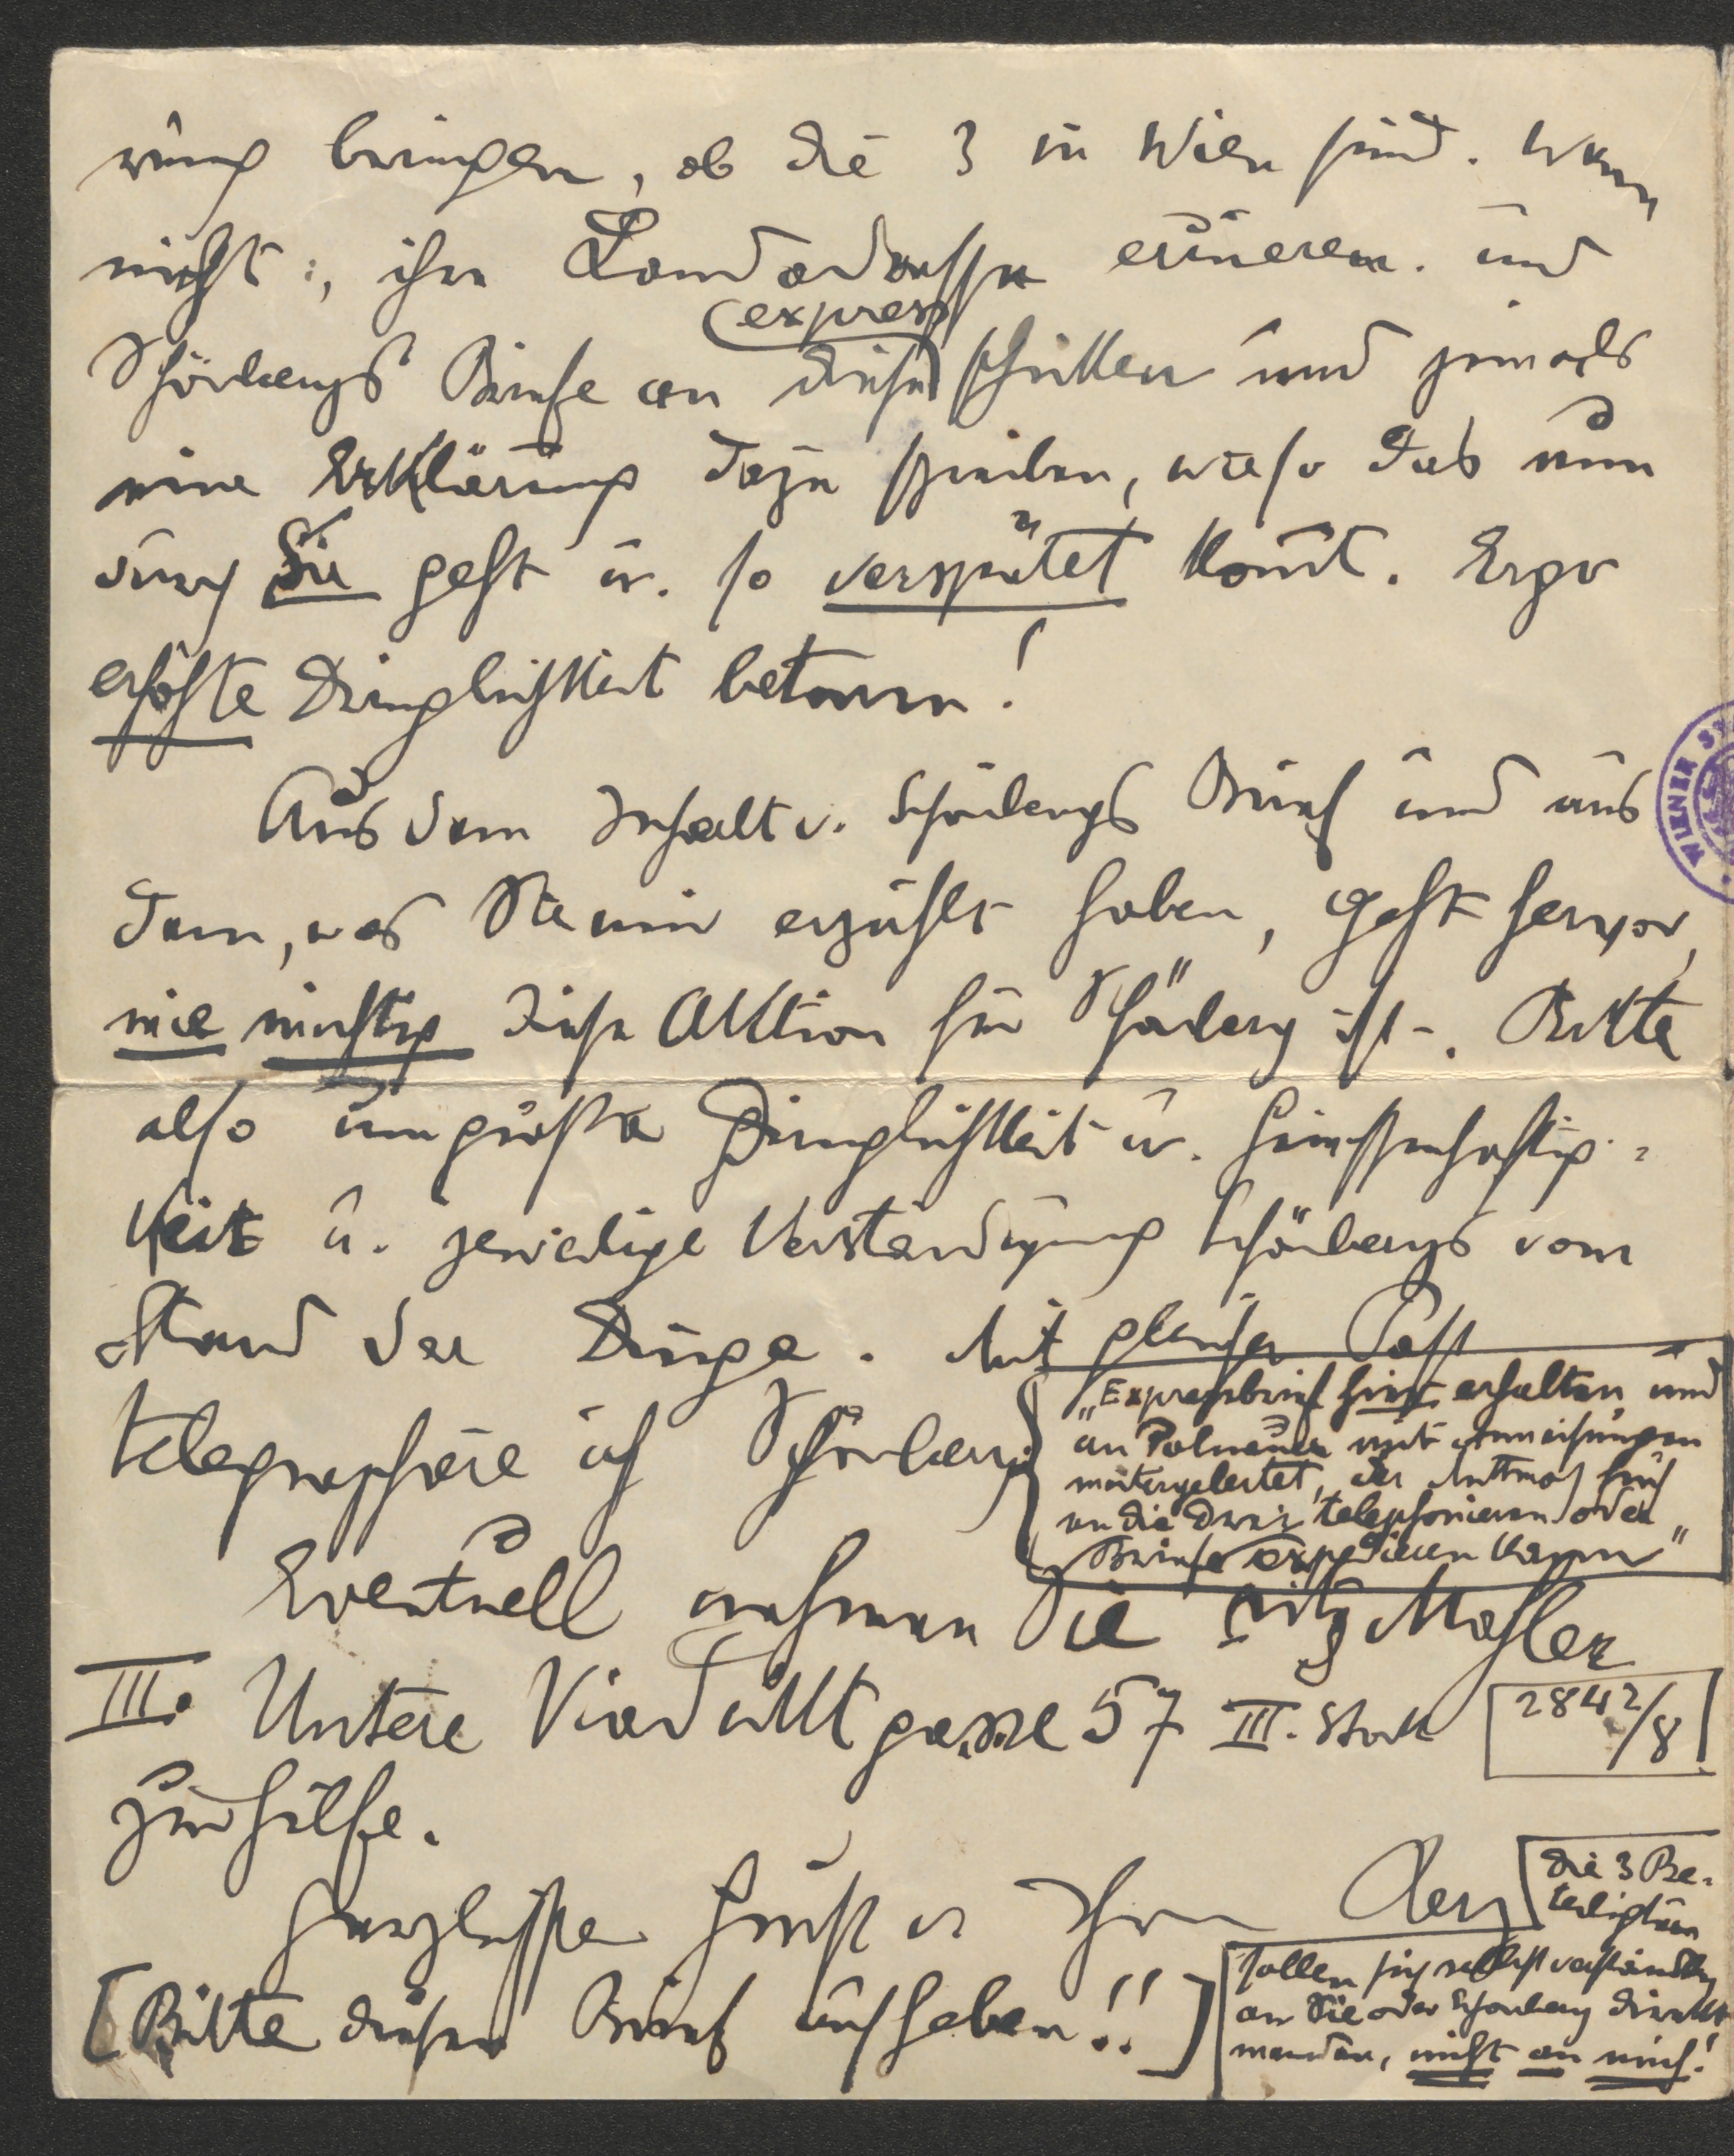 rung bringen, ob die 3 in Wien sind. Wenn
nicht:, ihre Landadresse eruieren. und
(express)
Schönbergs Briefe an diese schicken und jemals
eine Erklärung dazu schreiben, wieso das nun
durch Sie geht u. so verspätet kom̄t. Ergo
erhöhte Dringlichkeit betonen!
Aus dem Inhalt v. Schönbergs Brief und aus
dem, was Sie mir erzählt haben, geht hervor,
wie wichtig diese Aktion für Schönberg ist –. Bitte
also um größte Dringlichkeit u. Gewissenhaftig-
keit u. jeweilige Verständigung Schönbergs vom
Stand der Dinge. Mit gleicher Post
telegraphiere ich Schönberg
„Expressbrief hier erhalten und
an Polnauer mit Anweisungen
weitergeleitet, der Mittwoch früh
an die Drei telephonieren oder
Briefe expedieren kann"
Eventuell nehmen Sie Fritz Mahler
III. Untere Viaduktgasse 57 III. Stock
2842/8
zuhilfe.
Herzlichste Grüße v Ihrem Berg
[Bitte diesen Brief aufheben!!]
die 3 Be-
teiligten
sollen sich selbstverständlich
an Sie oder Schönberg direkt
wenden, nicht an mich!
WIENER